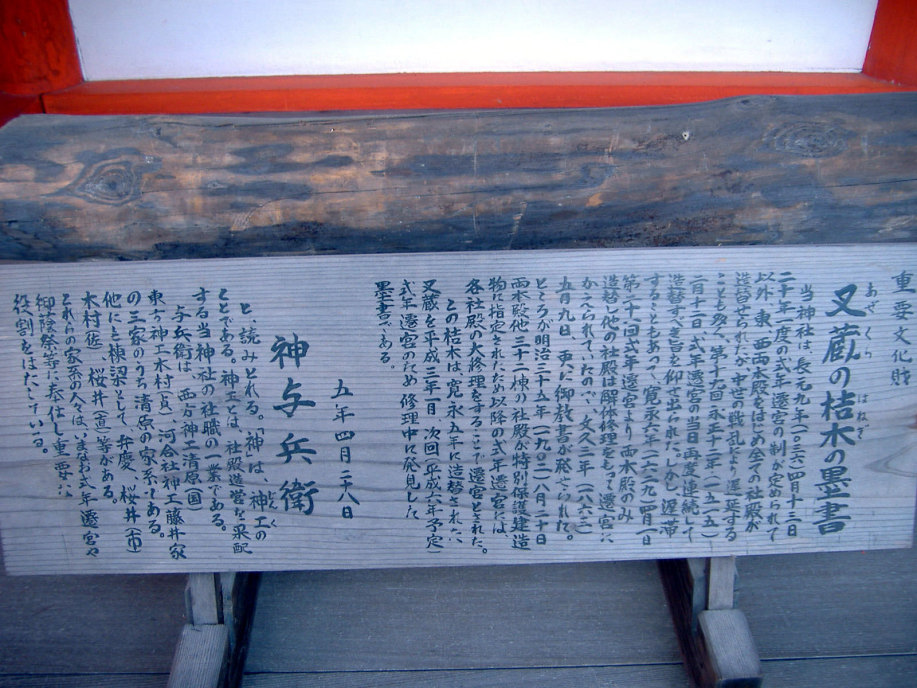 重要文化財
又蔵の桔木の墨書
あぜくら
はねぎ
当神社は、長元九年(一〇三六)四月十三日
二十一年度の式年遷宮の制が定められ
以外、東・西両本殿をはじめ全ての社殿が
造替せられたが、中世の戦乱により遅延する
ことも多く、第十九回の永正十二年(一五一五)
二月十二日、式年遷宮の当日、再度連続して
造替すべき旨を仰せ出されたが、更に遅滞
するときもあって、寛永六年(一六二九)四月一日
第二十一回式年遷宮より、両本殿のみ
造替し、他の社殿は解体修理をもって遷宮に
かえられていたのを、文久三年(一八六三)
五月九日、更に御教書が発せられた。
ところが明治三十五年(一九〇二)八月二十日
両本殿他三十一棟の社殿が特別保護建造
物に指定されたため、以降の式年遷宮には、
各社殿の大修理をすることで遷宮とした。
この桔木は、寛永五年に造替された
又蔵を、平成三年一月、次回(平成六年)予定
式年遷宮のため、修理中に発見した
墨書である。
五年四月二十八日
神与兵衛
と読みとれる。「神」は、神工の
ことである。神工とは、社殿造営を采配
する当神社の社職の一業である。
与兵衛は、西方神工清原(国)、
東方神工木村(貞)、河合社神工藤井家
の三家のうち清原の家系である。
他にもと棟梁として、弁慶、桜井(市)
木村(佐)、桜井(直)等がある。
これらの家系の人々は、いまなお式年遷宮や
御蔭祭等に奉仕し重要な
役割をはたしている。